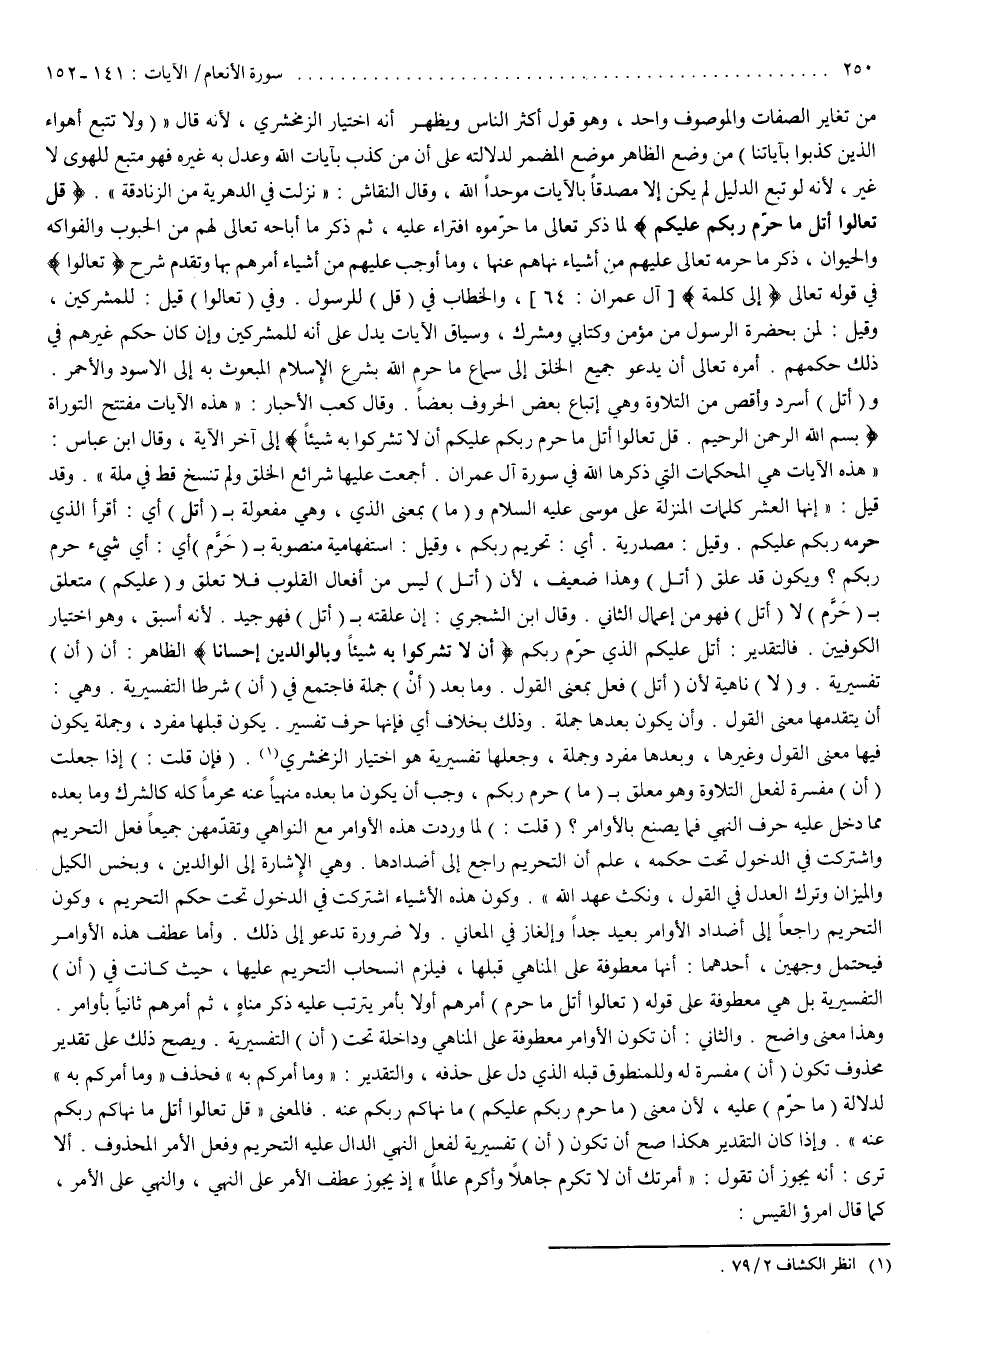 ٢٥٠ ................................................ سورة الأنعام/ الآيات : ١٤١ -١٥٢
من تغاير الصفات والموصوف واحد ، وهو قول أكثر الناس ويظهر أنه اختيار الزمخشري ، لأنه قال « ( ولا تتبع أهواء
الذين كذبوا بآياتنا ) من وضع الظاهر موضع المضمر لدلالته على أن من كذب بآيات الله وعدل به غيره فهو متبع للهوى لا
غير ، لأنه لو تبع الدليل لم يكن إلا مصدقاً بالآيات موحداً الله ، وقال النقاش : « نزلت في الدهرية من الزنادقة » . ﴿ قل
تعالوا أتل ما حرّم ربكم عليكم ﴾ لما ذكر تعالى ما حرّموه افتراء عليه ، ثم ذكر ما أباحه تعالى لهم من الحبوب والفواكه
والحيوان ، ذكر ما حرمه تعالى عليهم من أشياء نهاهم عنها ، وما أوجب عليهم من أشياء أمرهم بها وتقدم شرح ﴿ تعالوا ﴾
في قوله تعالى ﴿ إلى كلمة ﴾ [ آل عمران : ٦٤ ] ، والخطاب في ( قل ) للرسول . وفي ( تعالوا ) قيل : للمشركين ،
وقيل : لمن بحضرة الرسول من مؤمن وكتابي ومشرك ، وسياق الآيات يدل على أنه للمشركين وإن كان حكم غيرهم في
ذلك حكمهم . أمره تعالى أن يدعو جميع الخلق إلى سماع ما حرم الله بشرع الإسلام المبعوث به إلى الاسود والأحمر .
و ( أتل ) أسرد وأقص من التلاوة وهي إتباع بعض الحروف بعضاً . وقال كعب الأحبار : « هذه الآيات مفتتح التوراة
﴿ بسم الله الرحمن الرحيم . قل تعالوا أتل ما حرم ربكم عليكم أن لا تشركوا به شيئاً ﴾ إلى آخر الآية ، وقال ابن عباس :
« هذه الآيات هي المحكمات التي ذكرها الله في سورة آل عمران . أجمعت عليها شرائع الخلق ولم تنسخ قط في ملة » . وقد
قيل : « إنها العشر كلمات المنزلة على موسى عليه السلام و ( ما ) بمعنى الذي ، وهي مفعولة بـ ( أتل ) أي : أقرأ الذي
حرمه ربكم عليكم . وقيل : مصدرية . أي : تحريم ربكم ، وقيل : استفهامية منصوبة بـ ( حَرَّم ) أي : أي شيء حرم
ربكم ؟ ويكون قد علق ( أتل ) وهذا ضعيف ، لأن ( أتل ) ليس من أفعال القلوب فلا تعلق و ( عليكم ) متعلق
بـ ( حَرَّم ) لا ( أتل ) فهو من إعمال الثاني . وقال ابن الشجري : إن علقته بـ ( أتل ) فهو جيد . لأنه أسبق ، وهو اختيار
الكوفيين . فالتقدير : أتل عليكم الذي حرّم ربكم ﴿ أن لا تشركوا به شيئاً وبالوالدين إحسانا ﴾ الظاهر : أن ( أن )
تفسيرية . و ( لا ) ناهية لأن ( أتل ) فعل بمعنى القول . وما بعد ( أنْ ) جملة فاجتمع في ( أن ) شرطا التفسيرية . وهي :
أن يتقدمها معنى القول . وأن يكون بعدها جملة . وذلك بخلاف أي فإنها حرف تفسير . يكون قبلها مفرد ، وجملة يكون
فيها معنى القول وغيرها ، وبعدها مفرد وجملة ، وجعلها تفسيرية هو اختيار الزمخشري(١) . ( فإن قلت : ) إذا جعلت
( أن ) مفسرة لفعل التلاوة وهو معلق بـ ( ما ) حرم ربكم ، وجب أن يكون ما بعده منهياً عنه محرماً كله كالشرك وما بعده
مما دخل عليه حرف النهي فما يصنع بالأوامر ؟ ( قلت : ) لما وردت هذه الأوامر مع النواهي وتقدّمهن جميعاً فعل التحريم
واشتركت في الدخول تحت حكمه ، علم أن التحريم راجع إلى أضدادها . وهي الإشارة إلى الوالدين ، وبخس الكيل
والميزان وترك العدل في القول ، ونكث عهد الله » . وكون هذه الأشياء اشتركت في الدخول تحت حكم التحريم ، وكون
التحريم راجعاً إلى أضداد الأوامر بعيد جداً وإلغاز في المعاني . ولا ضرورة تدعو إلى ذلك . وأما عطف هذه الأوامر
فيحتمل وجهين ، أحدهما : أنها معطوفة على المناهي قبلها ، فيلزم انسحاب التحريم عليها ، حيث كانت في ( أن )
التفسيرية بل هي معطوفة على قوله ( تعالوا أتل ما حرم ) أمرهم أولا بأمر يترتب عليه ذكر مناهٍ ، ثم أمرهم ثانياً بأوامر .
وهذا معنى واضح . والثاني : أن تكون الأوامر معطوفة على المناهي وداخلة تحت ( أن ) التفسيرية . ويصح ذلك على تقدير
محذوف تكون ( أن ) مفسرة له وللمنطوق قبله الذي دل على حذفه ، والتقدير : « وما أمركم به » فحذف « وما أمركم به »
لدلالة ( ما حرّم ) عليه ، لأن معنى ( ما حرم ربكم عليكم ) ما نهاكم ربكم عنه . فالمعنى « قل تعالوا أتل ما نهاكم ربكم
عنه » . وإذا كان التقدير هكذا صح أن تكون ( أن ) تفسيرية لفعل النهي الدال عليه التحريم وفعل الأمر المحذوف . ألا
ترى : أنه يجوز أن تقول : « أمرتك أن لا تكرم جاهلاً وأكرم عالماً » إذ يجوز عطف الأمر على النهي ، والنهي على الأمر ،
كما قال امرؤ القيس :
(١) انظر الكشاف ٢/ ٧٩ .